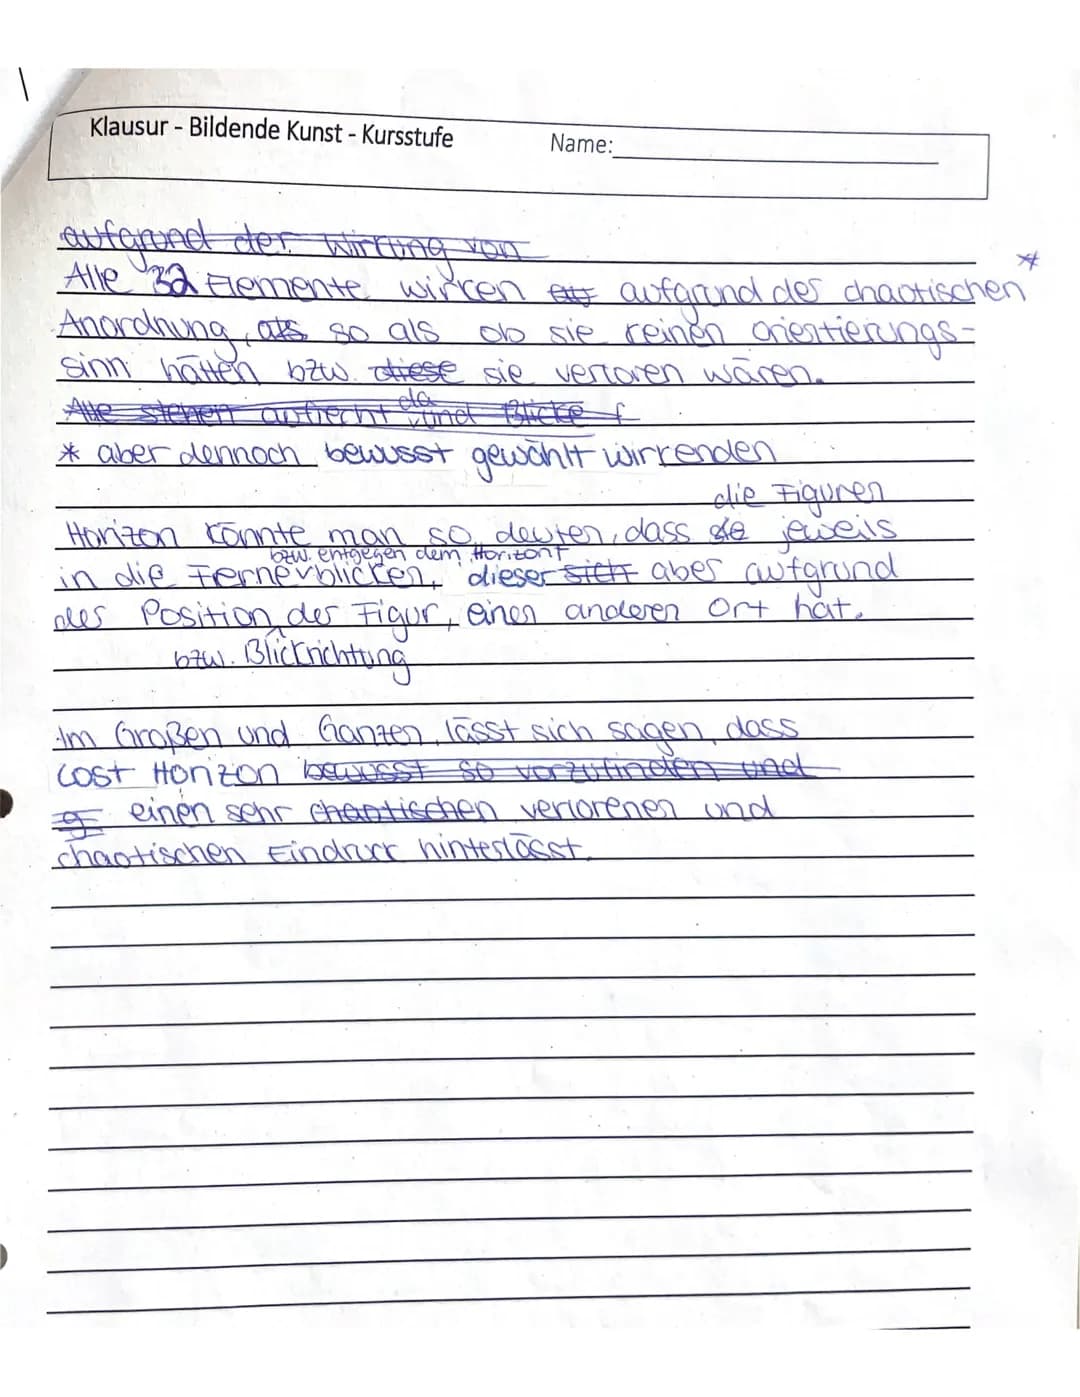 Klausur - Bildende Kunst - Kursstufe Name:
aufgrund der Wirkung von
Alle 32 Elemente wirken aufgrund der chaotischen *
Anordnung, als so als ob sie keinen orientierungs-
sinn hätten bzw. diese sie verloren wären.
Alle stehen aufrecht da und Blicke f
* aber dennoch bewusst gewählt wirkenden
die Figuren
Horizon könnte man so deuten, dass sie jeweils
bzw. entgegen dem Horizont
in die Ferne blicken, dieser sich aber aufgrund
der Position der Figur, einen anderen Ort hat.
bzw. Blickrichtung
Im Großen und Ganzen lässt sich sagen, dass
Lost Horizon bewusst so vorzufinden und
einen sehr chaotischen verlorenen und
chaotischen Eindruck hinterlässt.